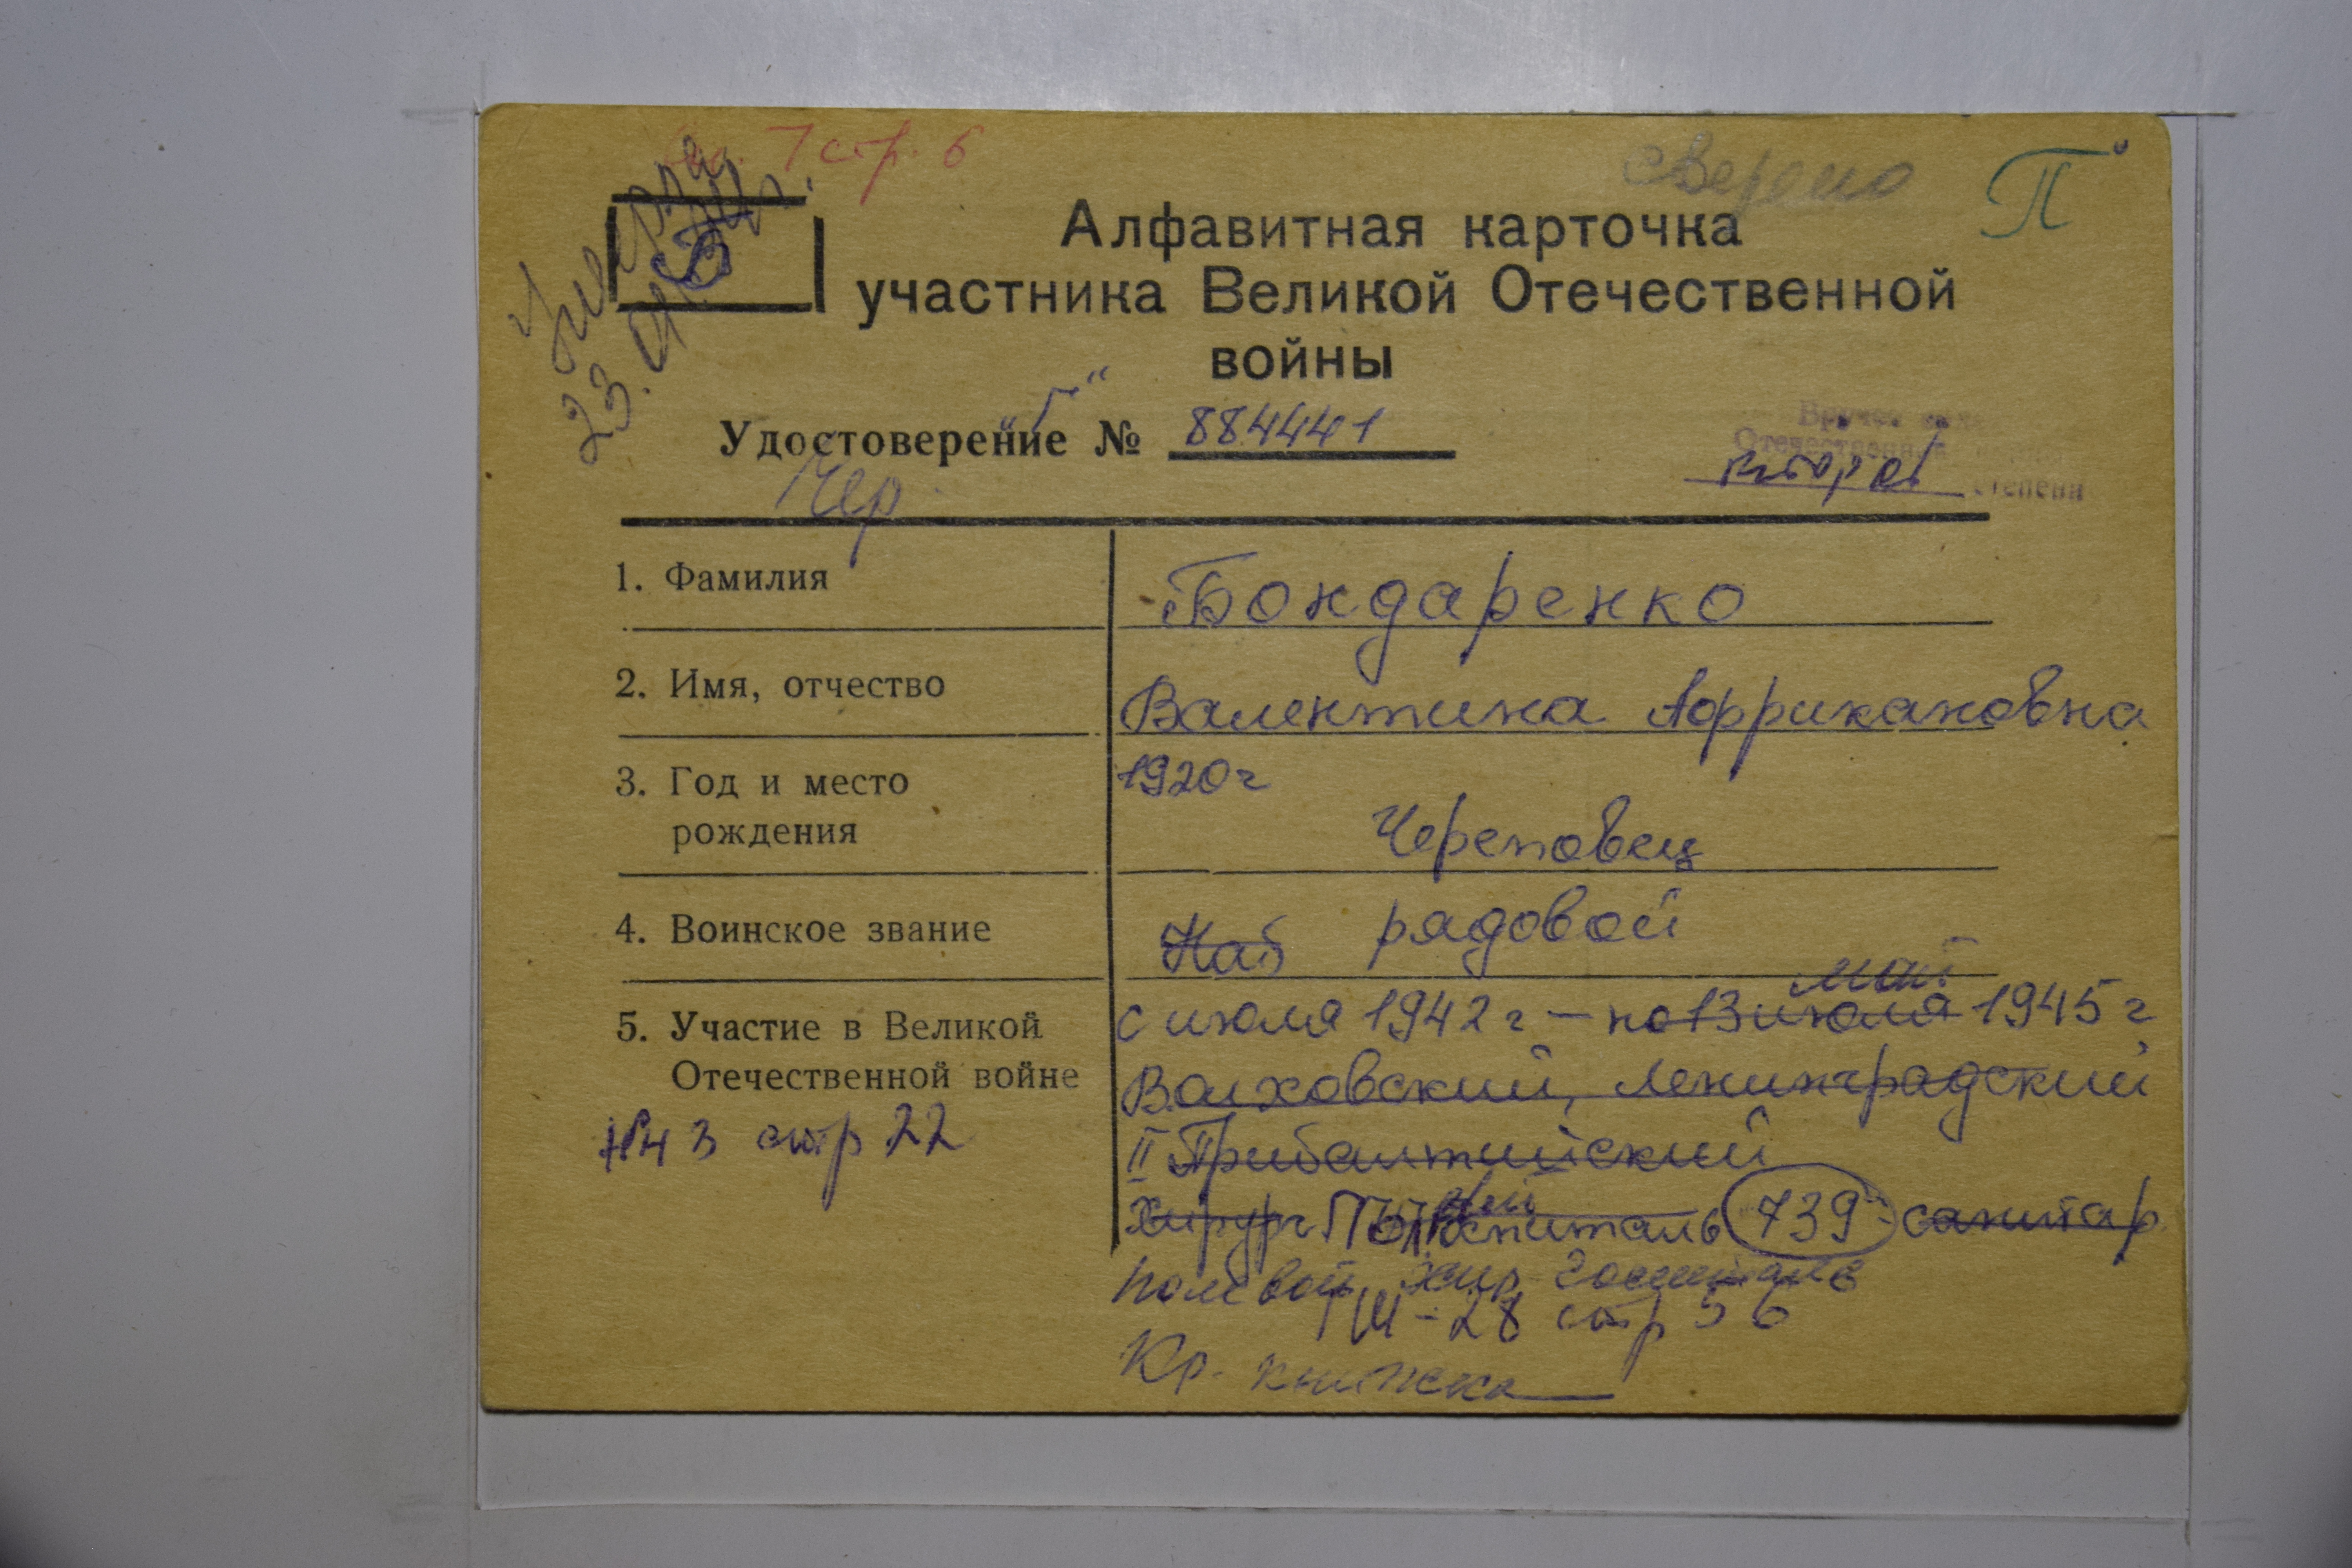 7 стр. 6
сверено
П
Умерла
23.
Б
Алфавитная карточка
участника Великой Отечественной
войны
Удостоверение "Г" № 884441
Отечественной
второй степени
Чер.
1. Фамилия Бондаренко
2. Имя, отчество Валентина Аффрикановна
3. Год и место 1920 г
рождения Череповец
4. Воинское звание Наб рядовой
май
5. Участие в Великой с июля 1942 г — по 13 июля 1945 г
Отечественной войне Волховский, Ленинградский
№ 3 стр 22 II Прибалтийский
Хирург госпиталь 739 - санитар
полевой хир. госпиталь
III - 28 стр 56
Кр. книжка